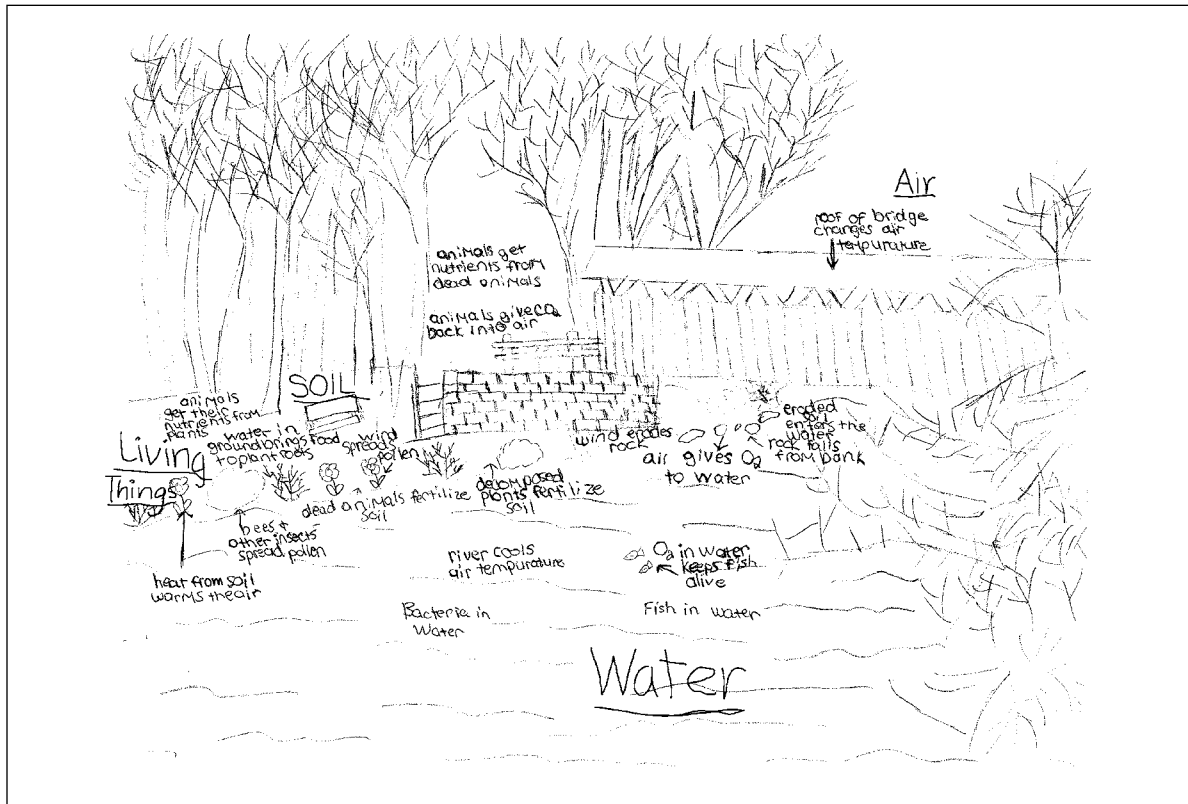 Air
roof of bridge
changes air
tempurature
animals get
nutrients from
dead animals
animals give CO2
back into air
SOIL
animals
get their
nutrients from
plants
water in
ground brings food
to plant roots
wind
spreads
pollen
Living
Things
wind erodes
rock
air gives O2
to water
eroded
soil
enters the
water
rock falls
from bank
decomposed
plants fertilize
soil
dead animals fertilize
soil
bees +
other insects
spread pollen
heat from soil
warms the air
river cools
air tempurature
O2 in water
keeps fish
alive
Bacteria in
Water
Fish in water
Water